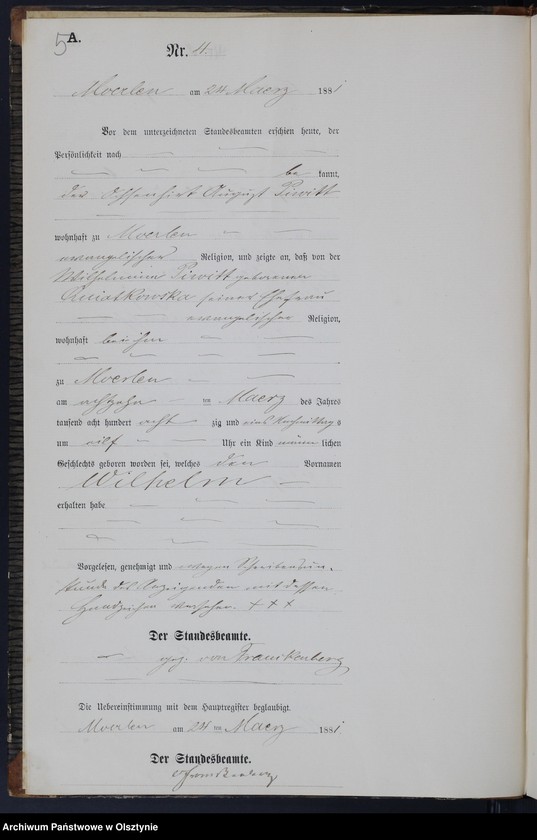 5 A.
Nr. 4.
Moerlen am 24 Maerz 1881
Vor dem unterzeichneten Standesbeamten erschien heute, der
Persönlichkeit nach
be kannt,
der Ochsenhirt August Piwitt
wohnhaft zu Moerlen
evangelischer Religion, und zeigte an, daß von der
Wilhelmine Piwitt geborenen
seiner Ehefrau
evangelischer Religion,
wohnhaft bei ihm
zu Moerlen
am achtzehn ten Maerz des Jahres
tausend acht hundert acht zig und eins Nachmittag s
um eilf Uhr ein Kind männ lichen
Geschlechts geboren worden sei, welches den Vornamen
Wilhelm
erhalten habe
Vorgelesen, genehmigt und wegen Schreibensun-
kunde des Anzeigenden mit dessen
Handzeichen versehen. + + +
Der Standesbeamte.
gez. von Frankenberg
Die Uebereinstimmung mit dem Hauptregister beglaubigt.
Moerlen am 24 ten Maerz 1881.
Der Standesbeamte.
v Frankenberg
Archiwum Państwowe w Olsztynie